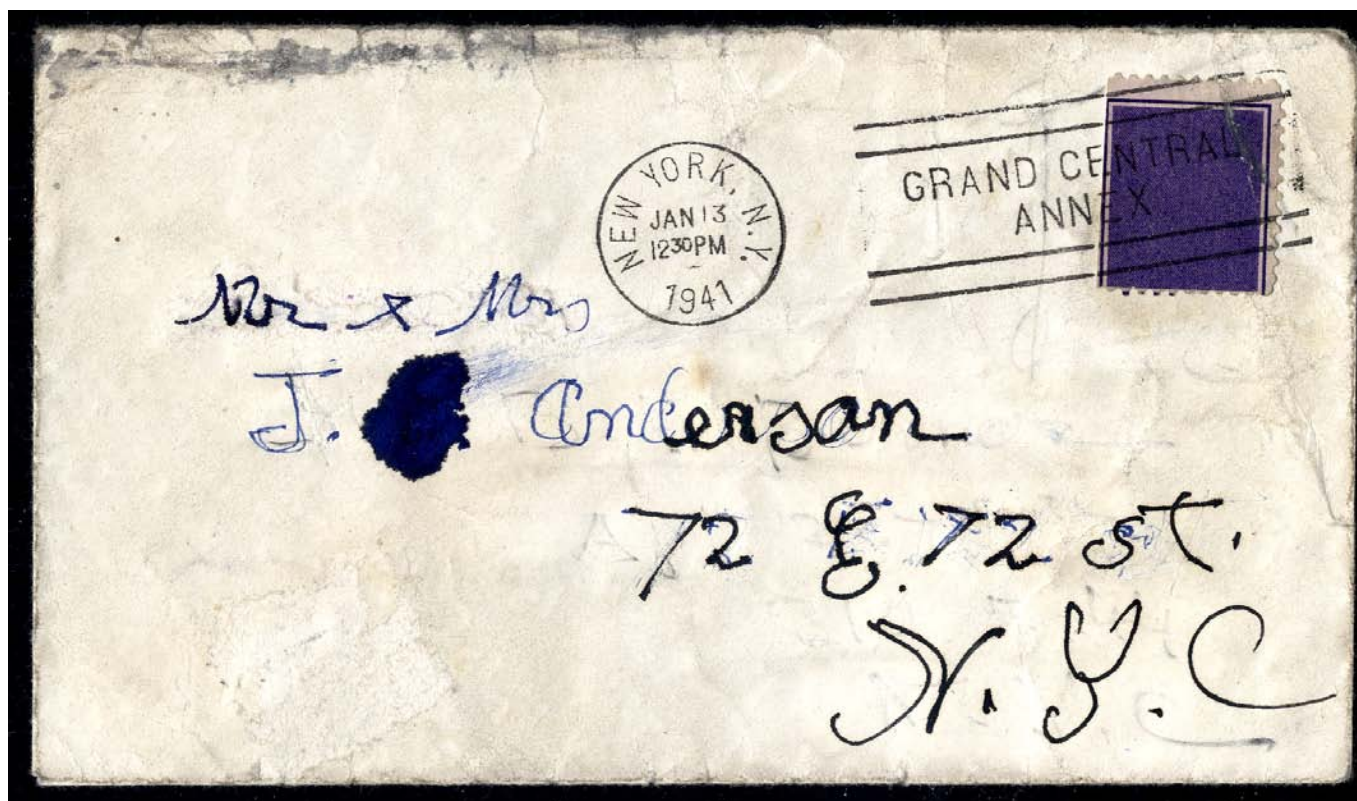 NEW YORK, N.Y.
JAN 13
12 30 PM
1941
GRAND CENTRAL
ANNEX.
Mr & Mrs
J. Anderson
72 E. 72 St.
N.Y.C